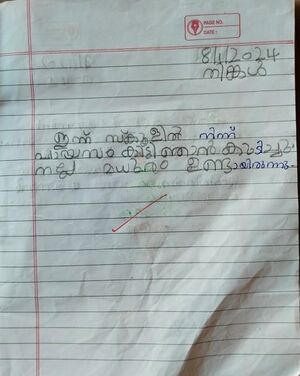 PAGE NO.
DATE:
8/1/2024
തിങ്കൾ
ഇന്ന് സ്കൂളിൽ നിന്ന്
പായസം കിട്ടി ഞാൻ കുടിച്ചു
നല്ല മധുരം ഉണ്ടായിരുന്നു.